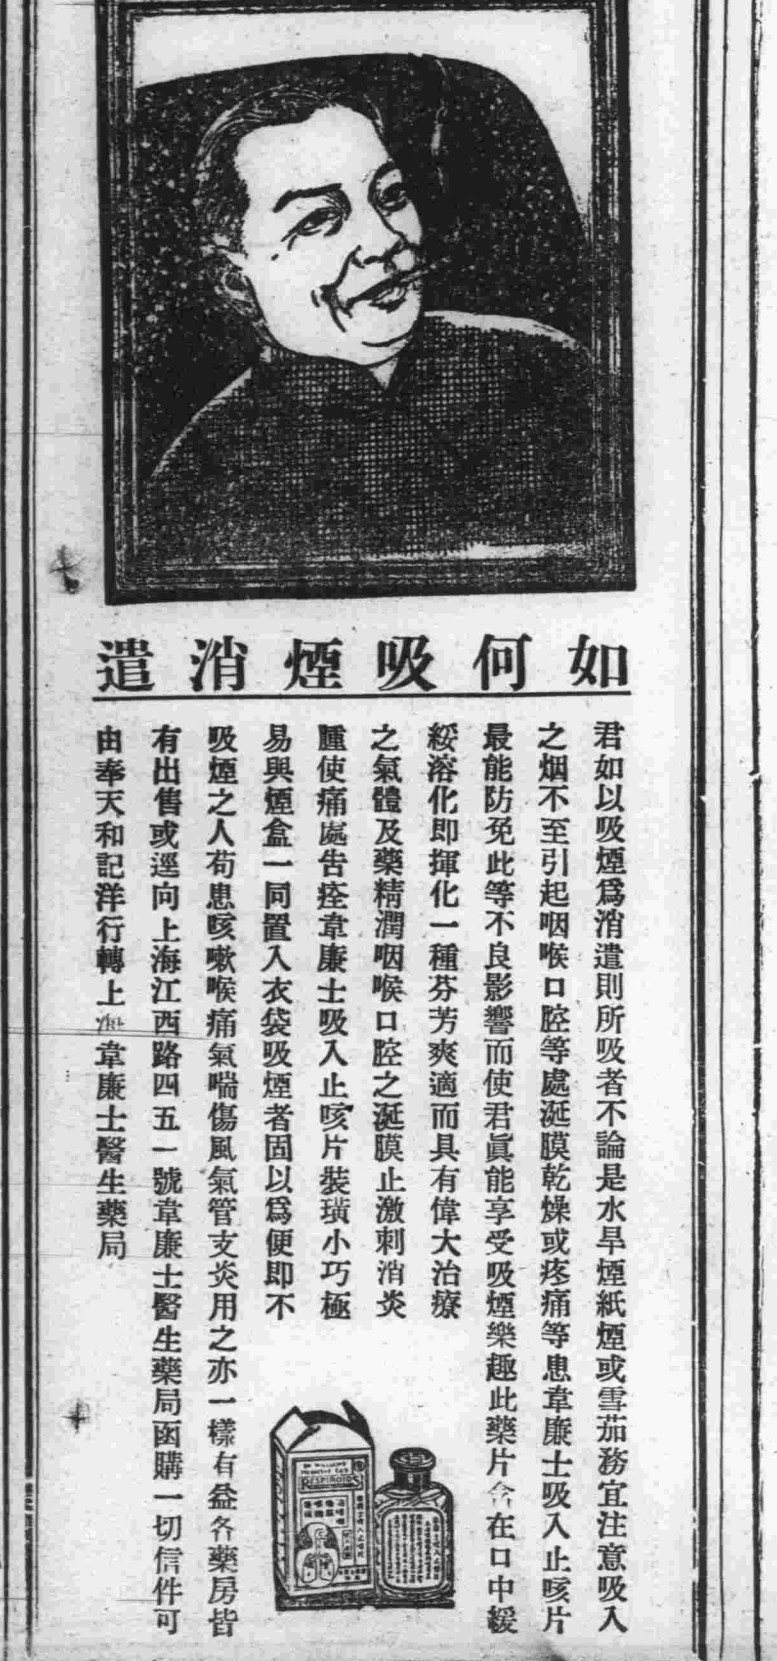 如何吸煙消遣
君如以吸煙爲消遣則所吸者不論是水旱煙紙煙或雪茄務宜注意吸入
之烟不至引起咽喉口腔等處涎膜乾燥或疼痛等患韋廉士吸入止咳片
最能防免此等不良影響而使君眞能享受吸煙樂趣此藥片含在口中緩
綏溶化即揮化一種芬芳爽適而具有偉大治療
之氣體及藥精潤咽喉口腔之涎膜止激刺消炎
腫使痛處告痊韋廉士吸入止咳片裝璜小巧極
易與煙盒一同置入衣袋吸煙者固以爲便即不
吸煙之人苟患咳嗽喉痛氣喘傷風氣管支炎用之亦一樣有益各藥房皆
有出售或逕向上海江西路四五一號韋廉士醫生藥局函購一切信件可
由奉天和記洋行轉上海韋廉士醫生藥局
DR WILLIAMS
MEDICINE CO'S
RESPIROIDS